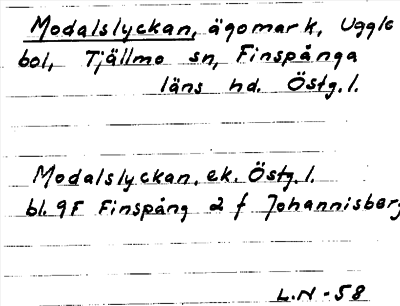 Modalslyckan, ägomark, Uggle
bol, Tjällmo sn, Finspånga
läns hd. Östg.l.
Modalslyckan. ek. Östg.l.
bl. 9F Finspång 2 f Johannisberg
L.N-58